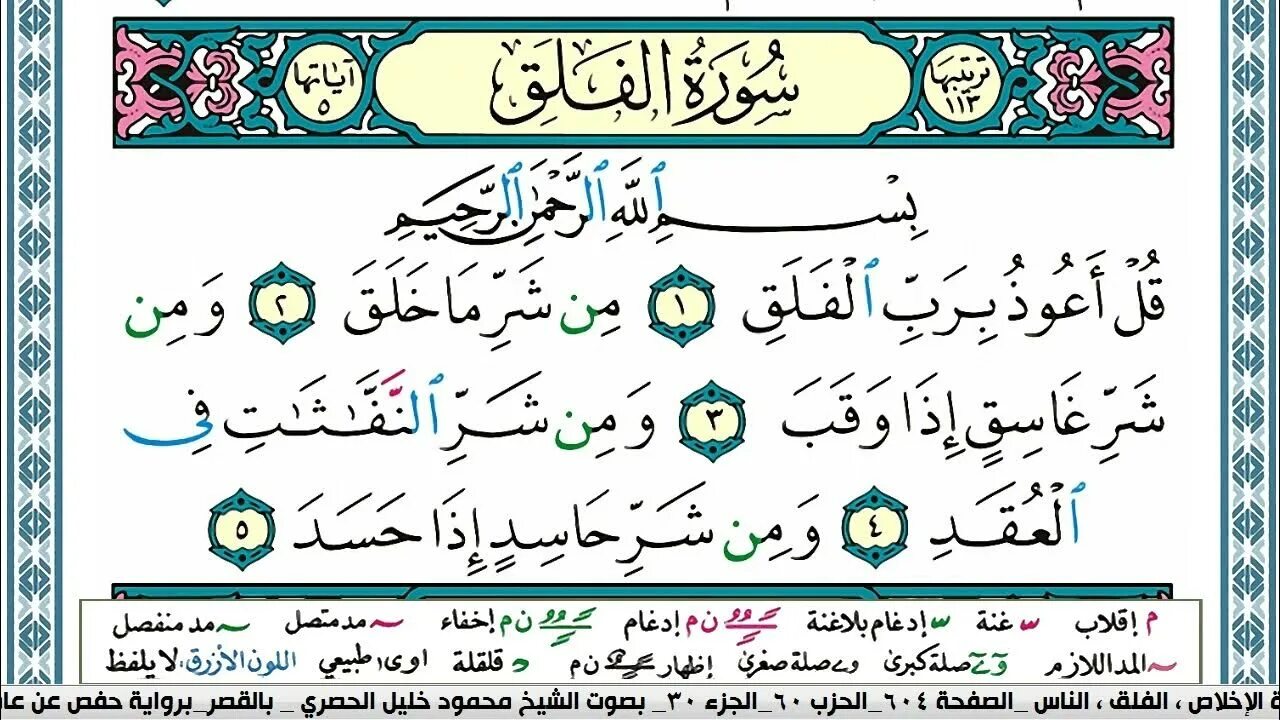 سُورَةُ الفَلَقِ
ترتيبها ١١٣
آياتها ٥
بِسْمِ ٱللَّهِ ٱلرَّحْمَٰنِ ٱلرَّحِيمِ
قُلْ أَعُوذُ بِرَبِّ ٱلْفَلَقِ ١ مِن شَرِّ مَا خَلَقَ ٢ وَمِن
شَرِّ غَاسِقٍ إِذَا وَقَبَ ٣ وَمِن شَرِّ ٱلنَّفَّٰثَٰتِ فِى
ٱلْعُقَدِ ٤ وَمِن شَرِّ حَاسِدٍ إِذَا حَسَدَ ٥
م إقلاب غنة إدغام بلاغنة ن م إدغام ن م إخفاء مد متصل مد منفصل
المد اللازم صلة كبرى و ے صلة صغرى إظهار ن م قلقلة اوى طبيعي اللون الأزرق: لا يلفظ
ة الإخلاص ، الفلق ، الناس _الصفحة ٦٠٤_الحزب ٦٠_الجزء ٣٠_ بصوت الشيخ محمود خليل الحصري _ بالقصر_برواية حفص عن عا